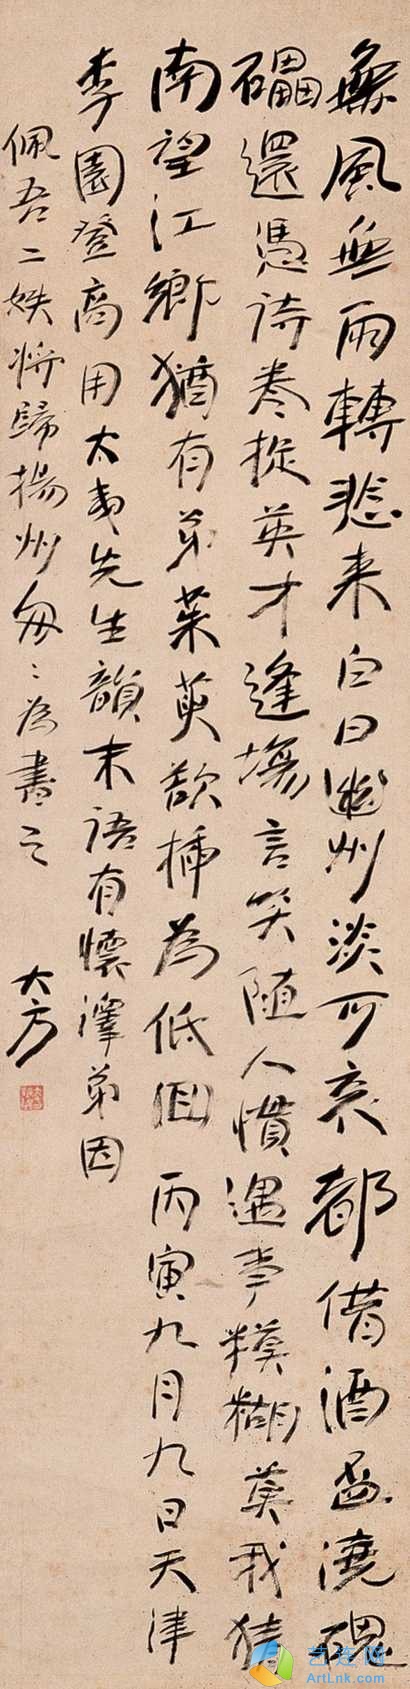 無風無雨轉悲来白日幽州淡可哀都借酒盃澆磈
礧還憑詩卷捉英才逢場言笑随人慣遇事糢糊莫我猜
南望江鄉猶有弟茱萸欲插為低佪 丙寅九月九日天津
李園登高用太夷先生韻末語有懷澤弟因
佩吾二姪將歸揚州匆々為書之 大方
艺连网
ArtLnk.com